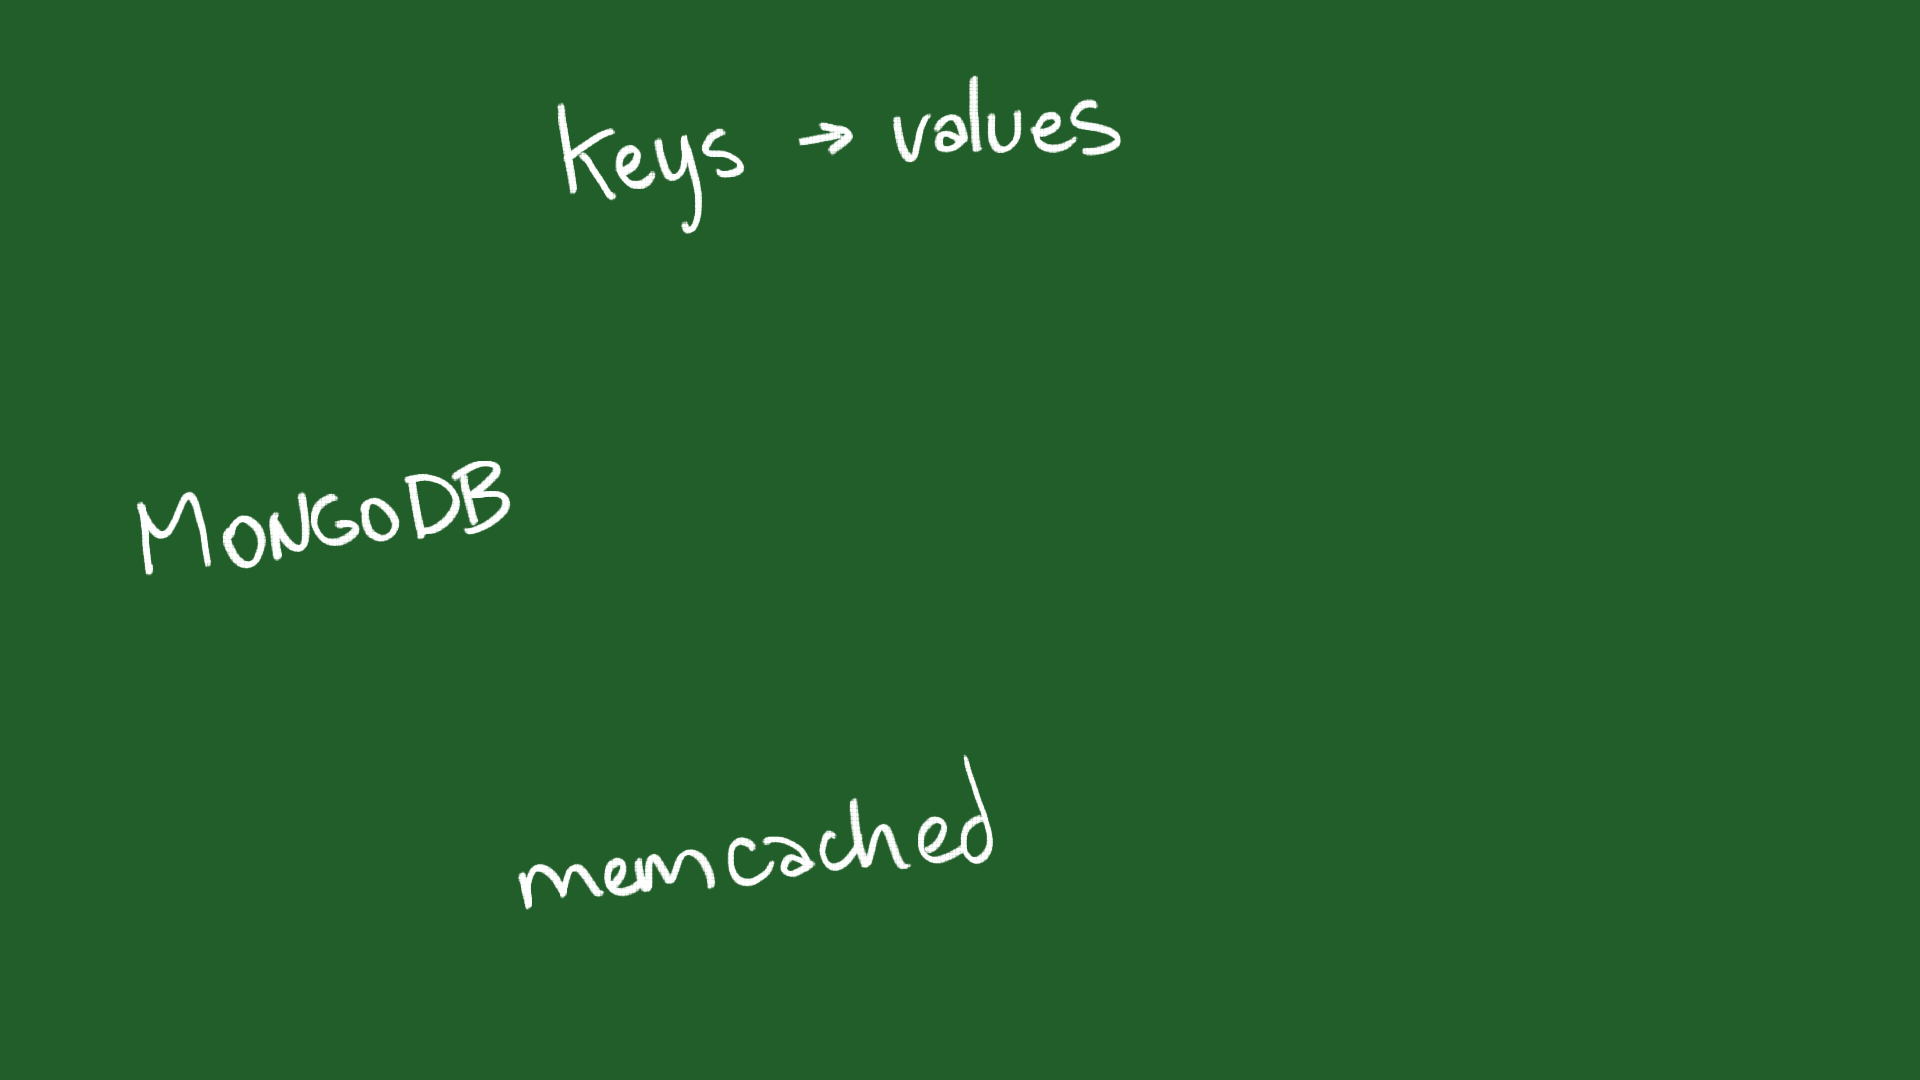 keys → values
MONGODB
memcached